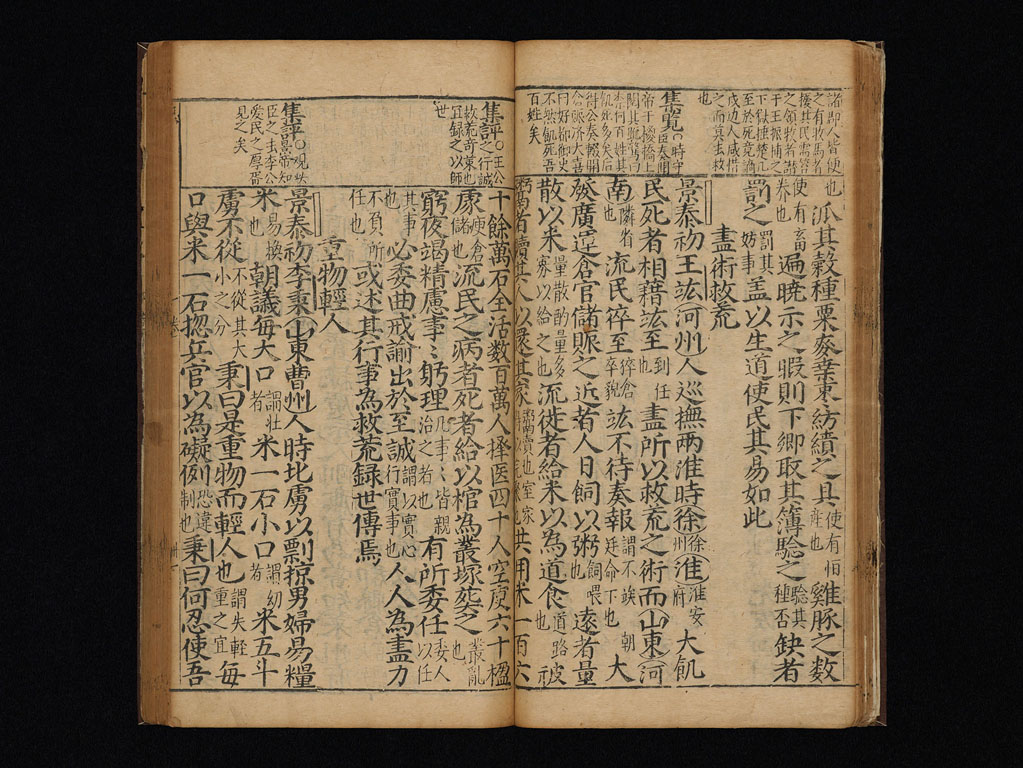 諸即人皆使
之有牧馬者
擾其民需容
之領牧者譖
于王振捕之
下獄捶楚几
至於死竟謫
戍边人咸惜
之而
也
集覽○時于
帝于橋上
閱其疏驚曰
柰何百姓其
飢死多矣后
得公奏輙開
倉賑济大言
曰好御史
不然飢死吾
百姓矣
也派其穀種粟麥桑棗紡績之具使有恒産也雞豚之数
使有畜养也遍晓示之暇則下鄉取其簿驗之驗其種否缺者
罰之罰其妨事盖以生道使民其易如此
盡術救荒
景泰初王竑河州人巡撫兩淮時徐徐州淮淮安府大飢
民死者相藉竑至到任也盡所以救荒之術而山東河
南隣省也流民猝至猝倉卒貌竑不待奏報謂不竢朝廷命下也大
發廣運倉官儲賑之近者人日飼以粥飼喂也遠者量
散以米量散酌量多寡以給之也流徙者給米以為道食道路也被
鬻者贖其人以還其家鬻賣也室家共用米一百六
集評○王公
之行誠
救荒奇策也
宜録之以師
世
集評○觀此
景帝知
臣之李公
爱民之厚胥
見之矣
十餘萬石全活数百萬人擇医四十人空庾六十楹
庾使倉儲也流民之病者死者給以棺為叢塚葬之叢亂也
窮夜竭精慮事〻躬理凡事〻皆親治之者也有所委任委人以任
其事也必委曲戒諭出於至誠謂以實心行實事也人人為盡力
不負所任也或述其行事為救荒録世傳焉
重物輕人
景泰初李秉山東曹州人時北虜以剽掠男婦易糧
米易換也朝議每大口謂壯者米一石小口謂幼者米五斗
虜不從不從其大小之分秉曰是重物而輕人也謂失輕重之宜每
口與米一石捴兵官以為礙例恐違制也秉曰何忍使吾